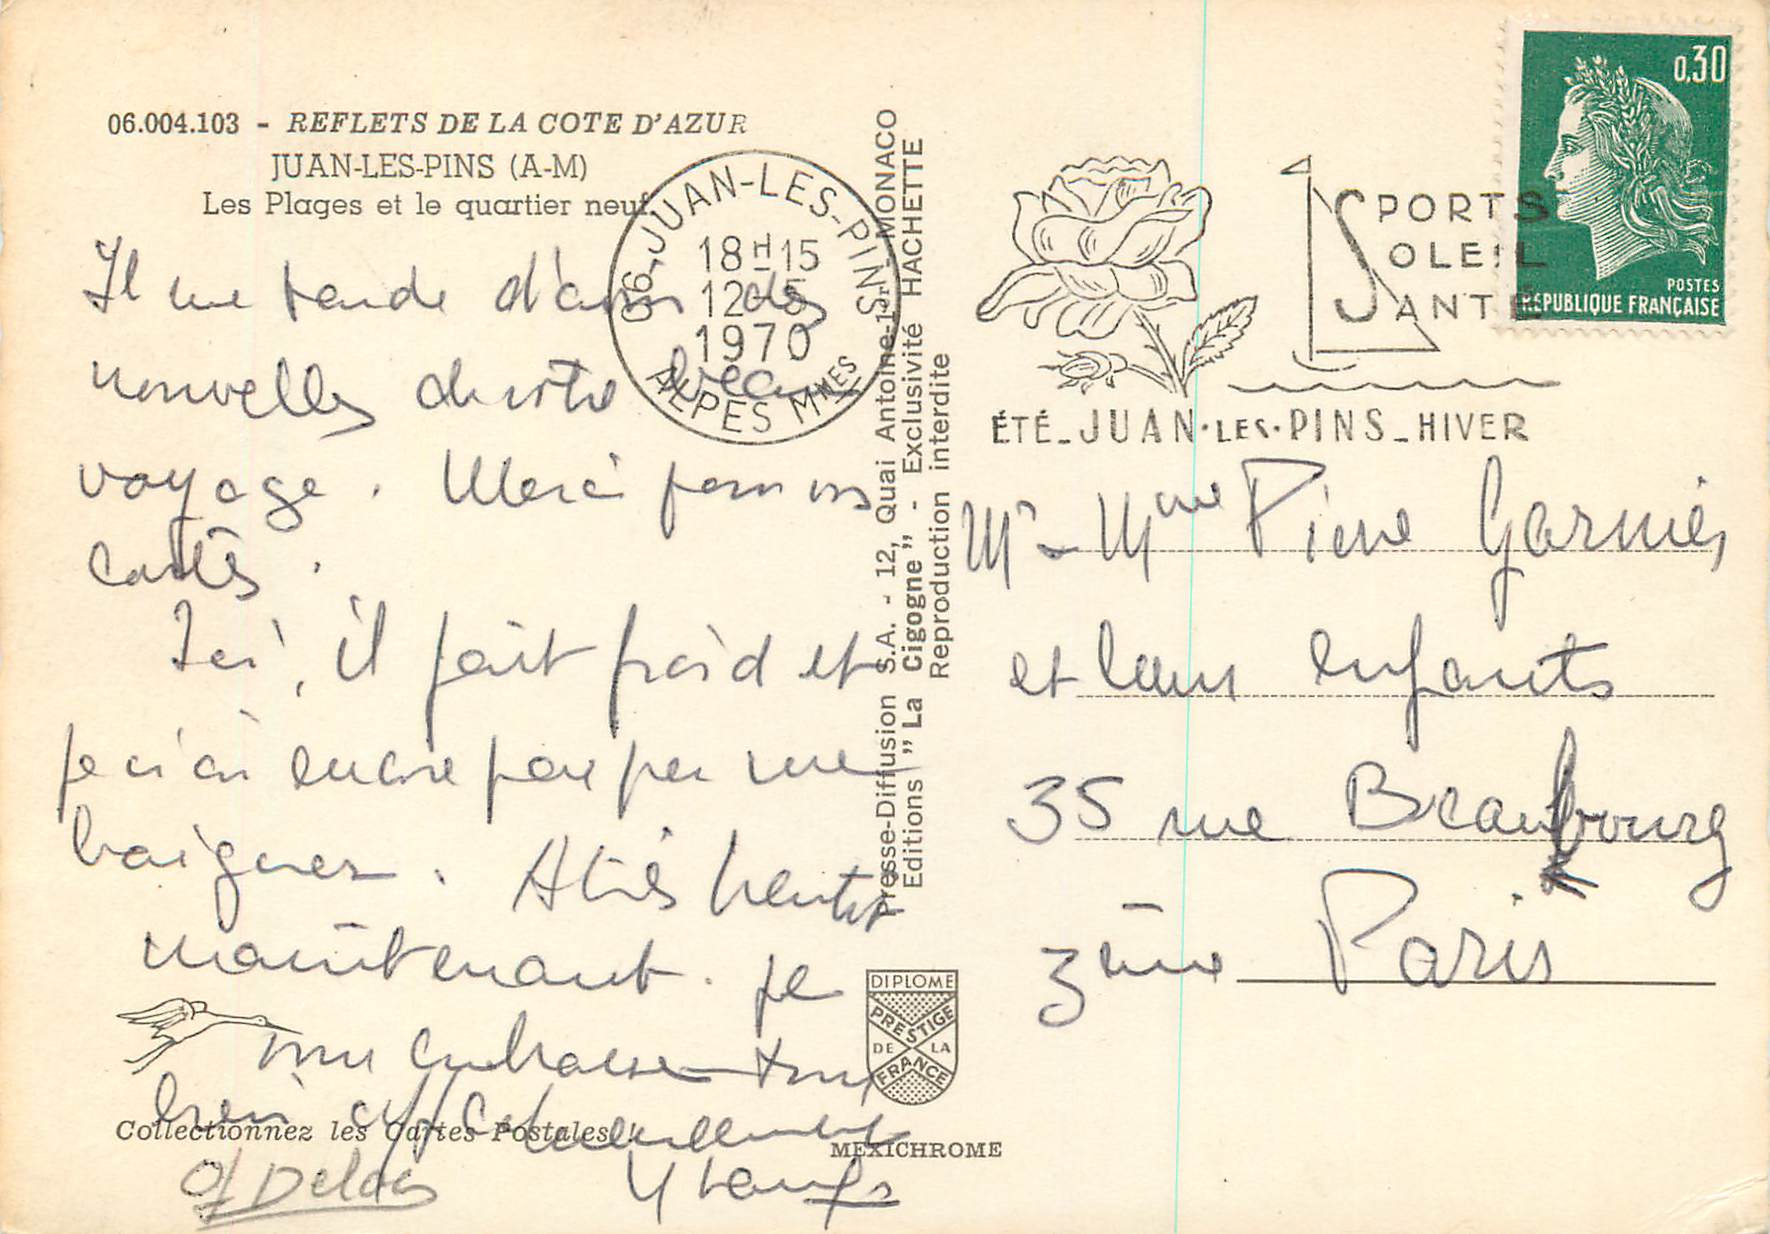 06.004.103 - REFLETS DE LA COTE D'AZUR
JUAN-LES-PINS (A-M)
Les Plages et le quartier neuf
Il me tarde d'avoir des
nouvelles de votre beau
voyage. Merci pour vos
cartes.
Ici, il fait froid et
je n'ai encore pas pu me
baigner. A très bientôt
maintenant. Je
vous embrasse tous
bien affectueusement
Collectionnez les Cartes Postales !
Presse-Diffusion S.A. - 12, Quai Antoine-1er - MONACO
Editions "La Cigogne" - Exclusivité HACHETTE
Reproduction interdite
DIPLOME
PRESTIGE
DE LA
FRANCE
MEXICHROME
06-JUAN-LES-PINS
18H15
1970
ALPES MMES
SPORTS
SOLEIL
SANTÉ
ÉTÉ-JUAN·LES·PINS-HIVER
0,30
POSTES
RÉPUBLIQUE FRANÇAISE
Mr - Mme Pierre Garnier
et leurs enfants
35 rue Beaubourg
3ème Paris